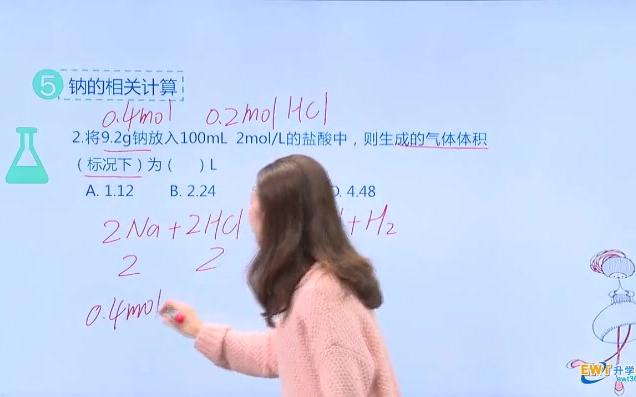 5 钠的相关计算
0.4mol 0.2mol HCl
2.将9.2g钠放入100mL 2mol/L的盐酸中，则生成的气体体积
（标况下）为（ ）L
A. 1.12 B. 2.24 D. 4.48
2Na+2HCl +H₂
2 2
0.4mol
EWT升学
ewt36